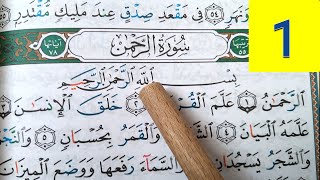 وَنَهَرٍ ٥٤ فِي مَقْعَدِ صِدْقٍ عِندَ مَلِيكٍ مُّقْتَدِرٍ
1
سُورَةُ الرَّحْمٰن
آيَاتُهَا ٧٨
تَرْتِيبُهَا ٥٥
بِسْمِ اللَّهِ الرَّحْمَٰنِ الرَّحِيمِ
الرَّحْمَٰنُ ١ عَلَّمَ الْقُرْ ٢ خَلَقَ الْإِنسَانَ ٣
عَلَّمَهُ الْبَيَانَ ٤ الشَّمْ وَالْقَمَرُ بِحُسْبَانٍ ٥ وَالنَّجْمُ
وَالشَّجَرُ يَسْجُدَانِ وَالسَّمَاءَ رَفَعَهَا وَوَضَعَ الْمِيزَانَ